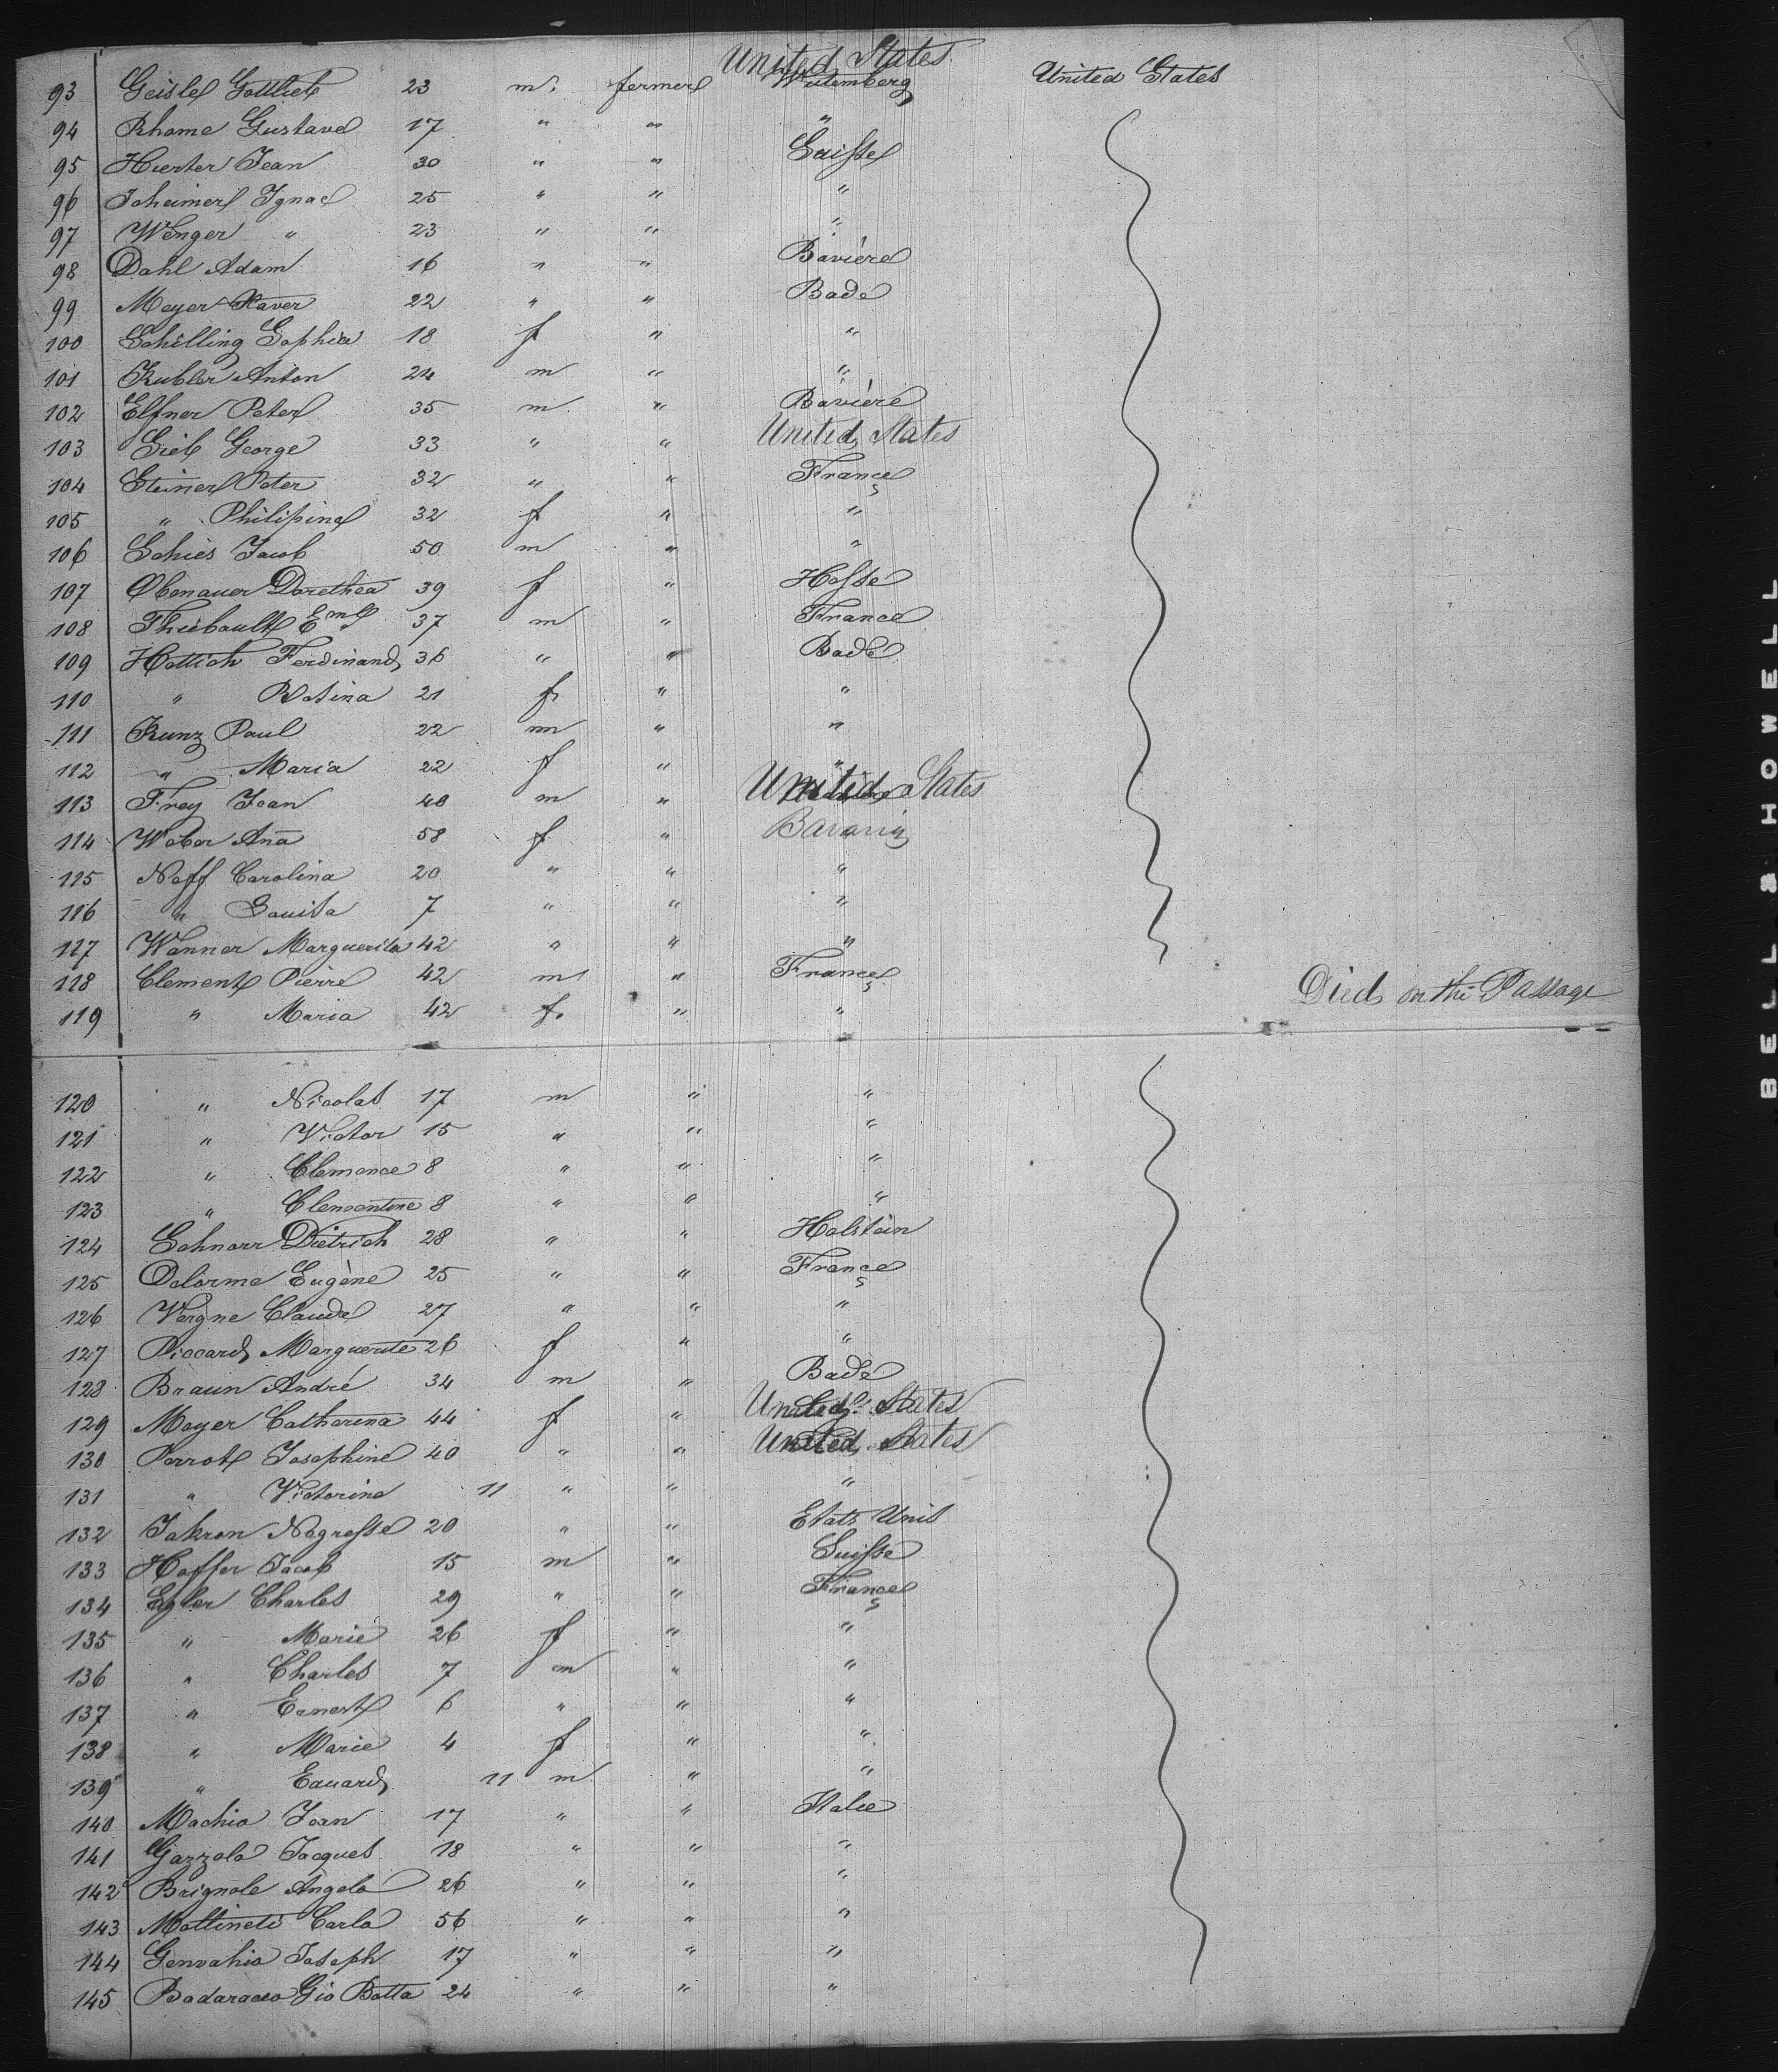 United States
93 Geisle Gottlieb 23 m. fermer Wutemberg United States
94 Rhome Gustave 17 " " "
95 Hierter Jean 30 " " Suisse
96 Ignac 25 " " "
97 Wenger " 23 " " "
98 Dahl Adam 16 " " Bavière
99 Meyer Xaver 22 " " Bade
100 Schilling Sophia 18 f " "
101 Kubler Anton 24 m " "
102 Elfner Peter 35 m " Bavière
103 Sieb George 33 " " United States
104 Steiner Peter 32 " " France
105 " Philipine 32 f " "
106 Schies Jacob 50 m " "
107 Obenauer Dorethea 39 f " Hesse
108 Thiebault Emle 37 m " France
109 Hottich Ferdinand 36 " " Bade
110 " Rosina 21 f " "
111 Kunz Paul 22 m " "
112 " Maria 22 f " "
113 Frey Jean 40 m " United States
114 Weber Ana 58 f " Bavaria
115 Neff Carolina 20 " " "
116 " Louisa 7 " " "
117 Wanner Marguerita 42 " " "
118 Clement Pierre 42 m " France
119 " Maria 42 f. " " Died on the Passage
120 " Nicolas 17 m " "
121 " Victor 15 " " "
122 " Clemence 8 " " "
123 " Clementine 8 " " "
124 Schnarr Dietrich 28 " " Holstein
125 Delorme Eugène 25 " " France
126 Vergne Claude 27 " " "
127 Piccard Marguerite 26 f " "
128 Braun André 34 m " Bade
129 Meyer Catherina 44 f " United States
130 Perrot Josephine 40 " " United States
131 " Victorine 11 " " "
132 Jakson Negresse 20 " " Etats Unis
133 Hoffer Jacob 15 m " Suisse
134 Egler Charles 29 " " France
135 " Marie 26 f " "
136 " Charles 7 m " "
137 " Ernest 6 " " "
138 " Marie 4 f " "
139 " Eduard 11 m " "
140 Machio Jean 17 " " Italie
141 Gazzolo Jacques 18 " " "
142 Brignole Angelo 26 " " "
143 Mattineti Carlo 56 " " "
144 Genvahio Joseph 17 " " "
145 Badaracco Gio Batta 24 " " "
BELL & HOWELL